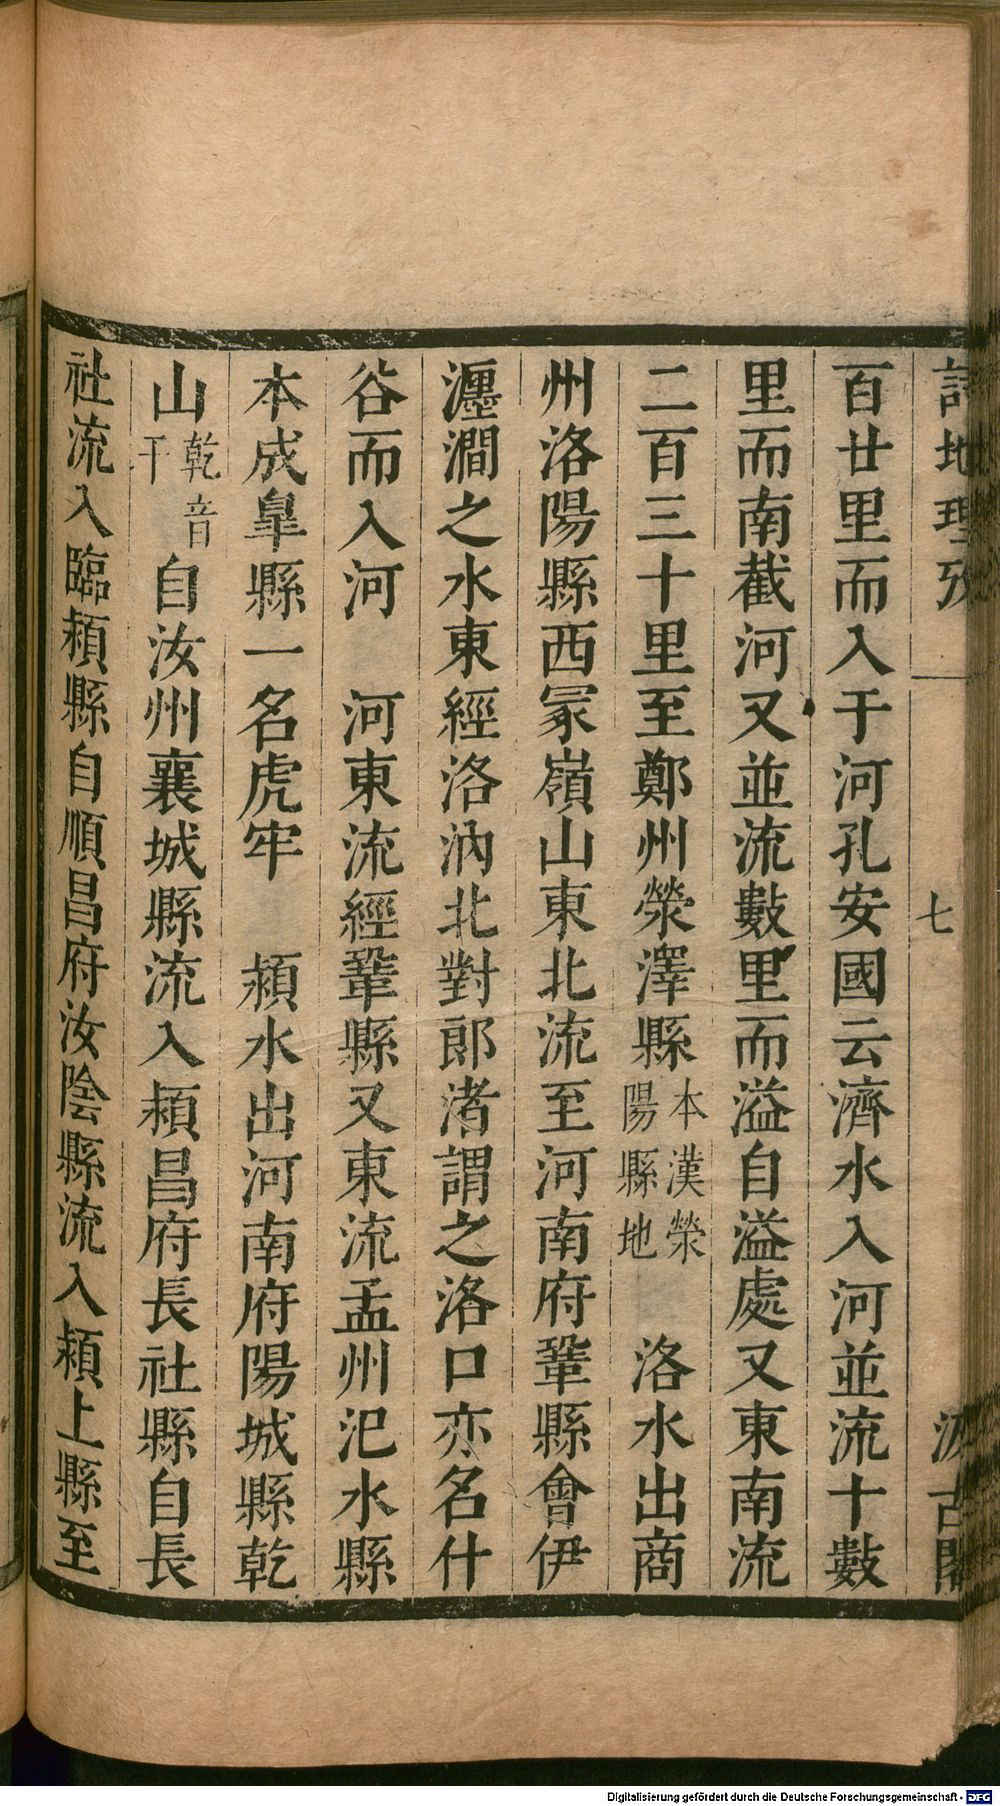 詩地理攷 七 汲古閣
百廿里而入于河孔安國云濟水入河並流十數
里而南截河又並流數里而溢自溢處又東南流
二百三十里至鄭州滎澤縣本漢滎陽縣地 洛水出商
州洛陽縣西冢嶺山東北流至河南府鞏縣會伊
瀍澗之水東經洛汭北對郎渚謂之洛口亦名什
谷而入河 河東流經鞏縣又東流孟州汜水縣
本成臯縣一名虎牢 潁水出河南府陽城縣乾
山乾音干自汝州襄城縣流入潁昌府長社縣自長
社流入臨潁縣自順昌府汝陰縣流入潁上縣至
Digitalisierung gefördert durch die Deutsche Forschungsgemeinschaft - DFG